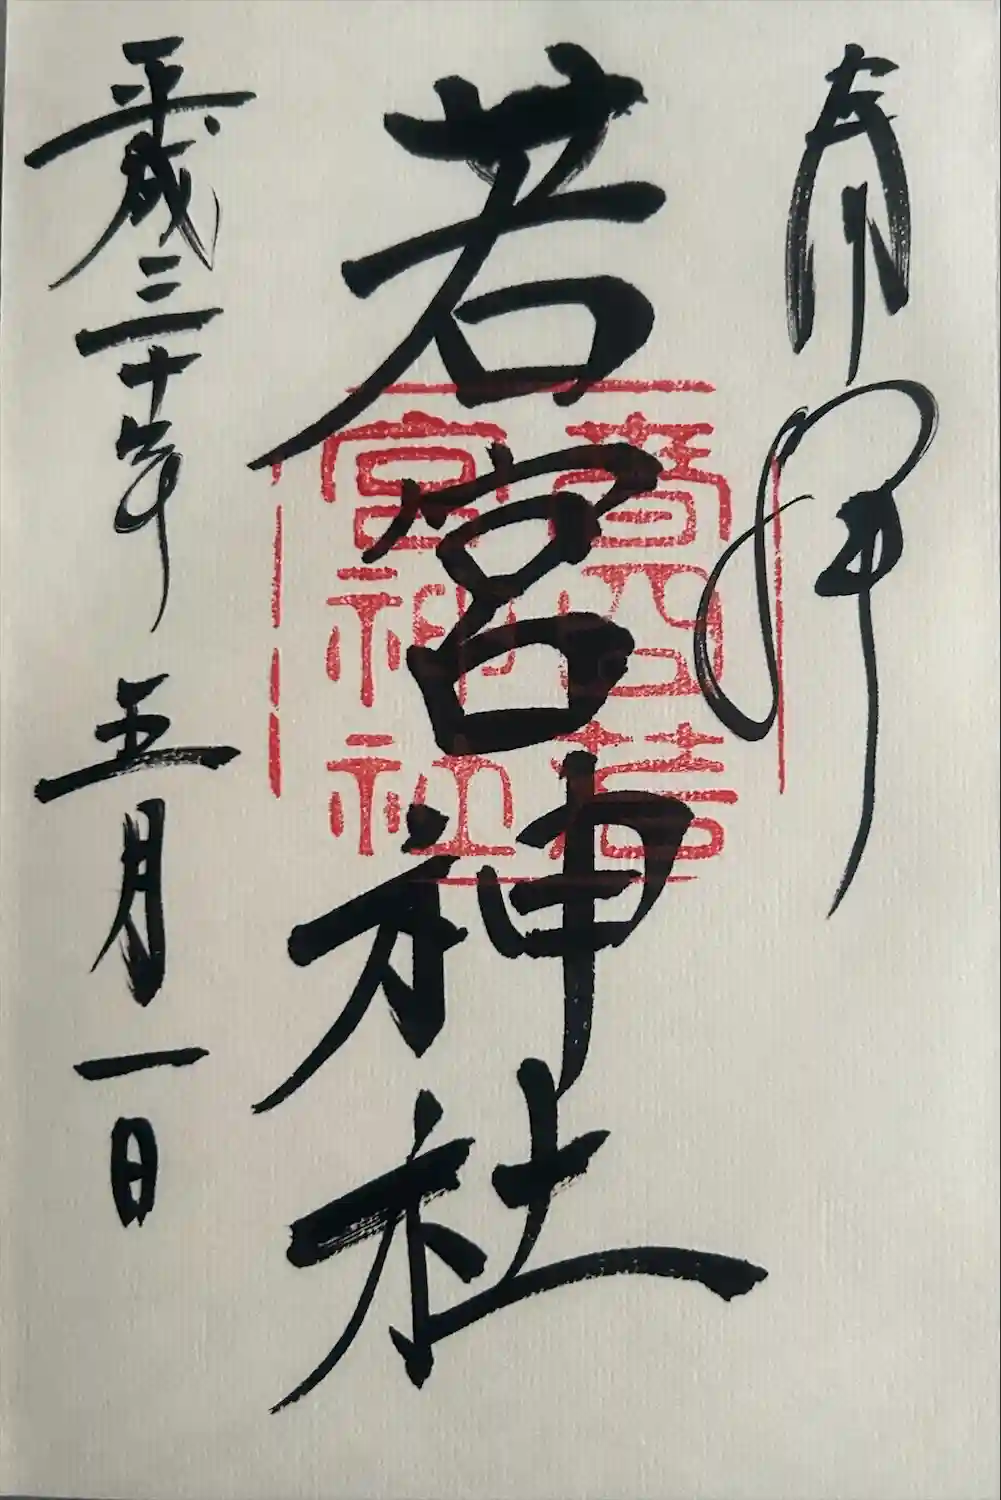 奉拝
若宮神社
平成三十年五月一日
若
宮神社